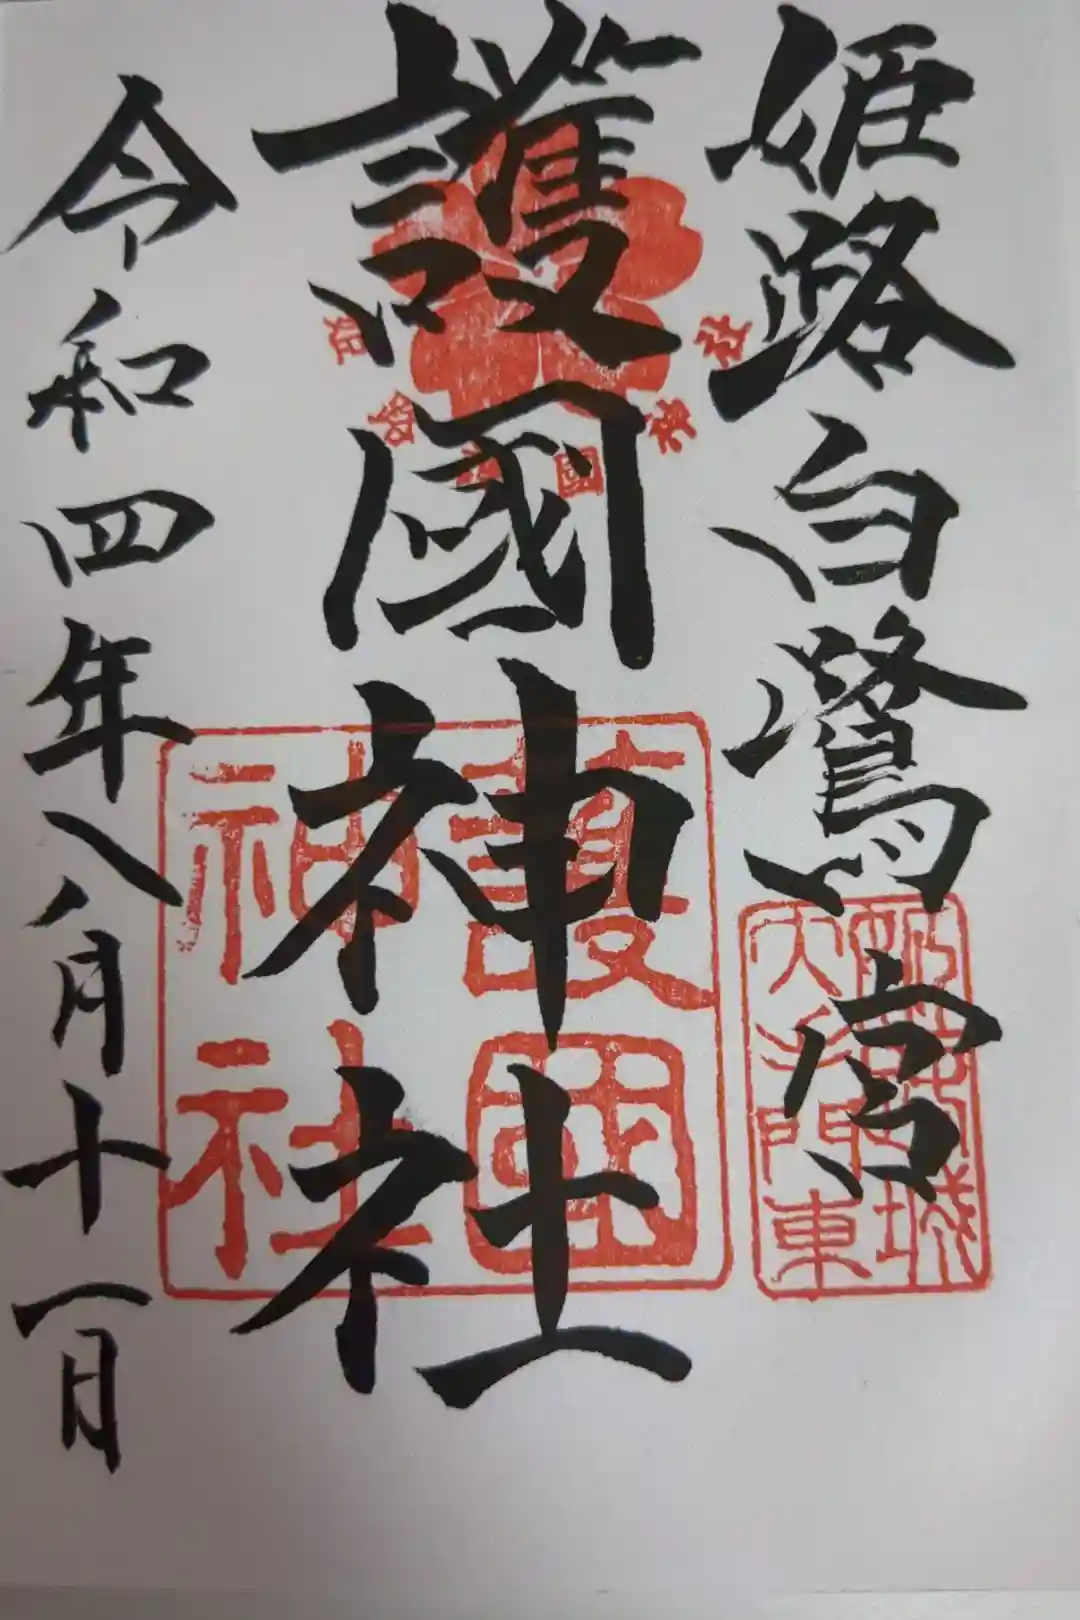 姫路白鷺宮
護國神社
令和四年八月十一日
姫路護國神社
護國
神社
姫路城
大手門東